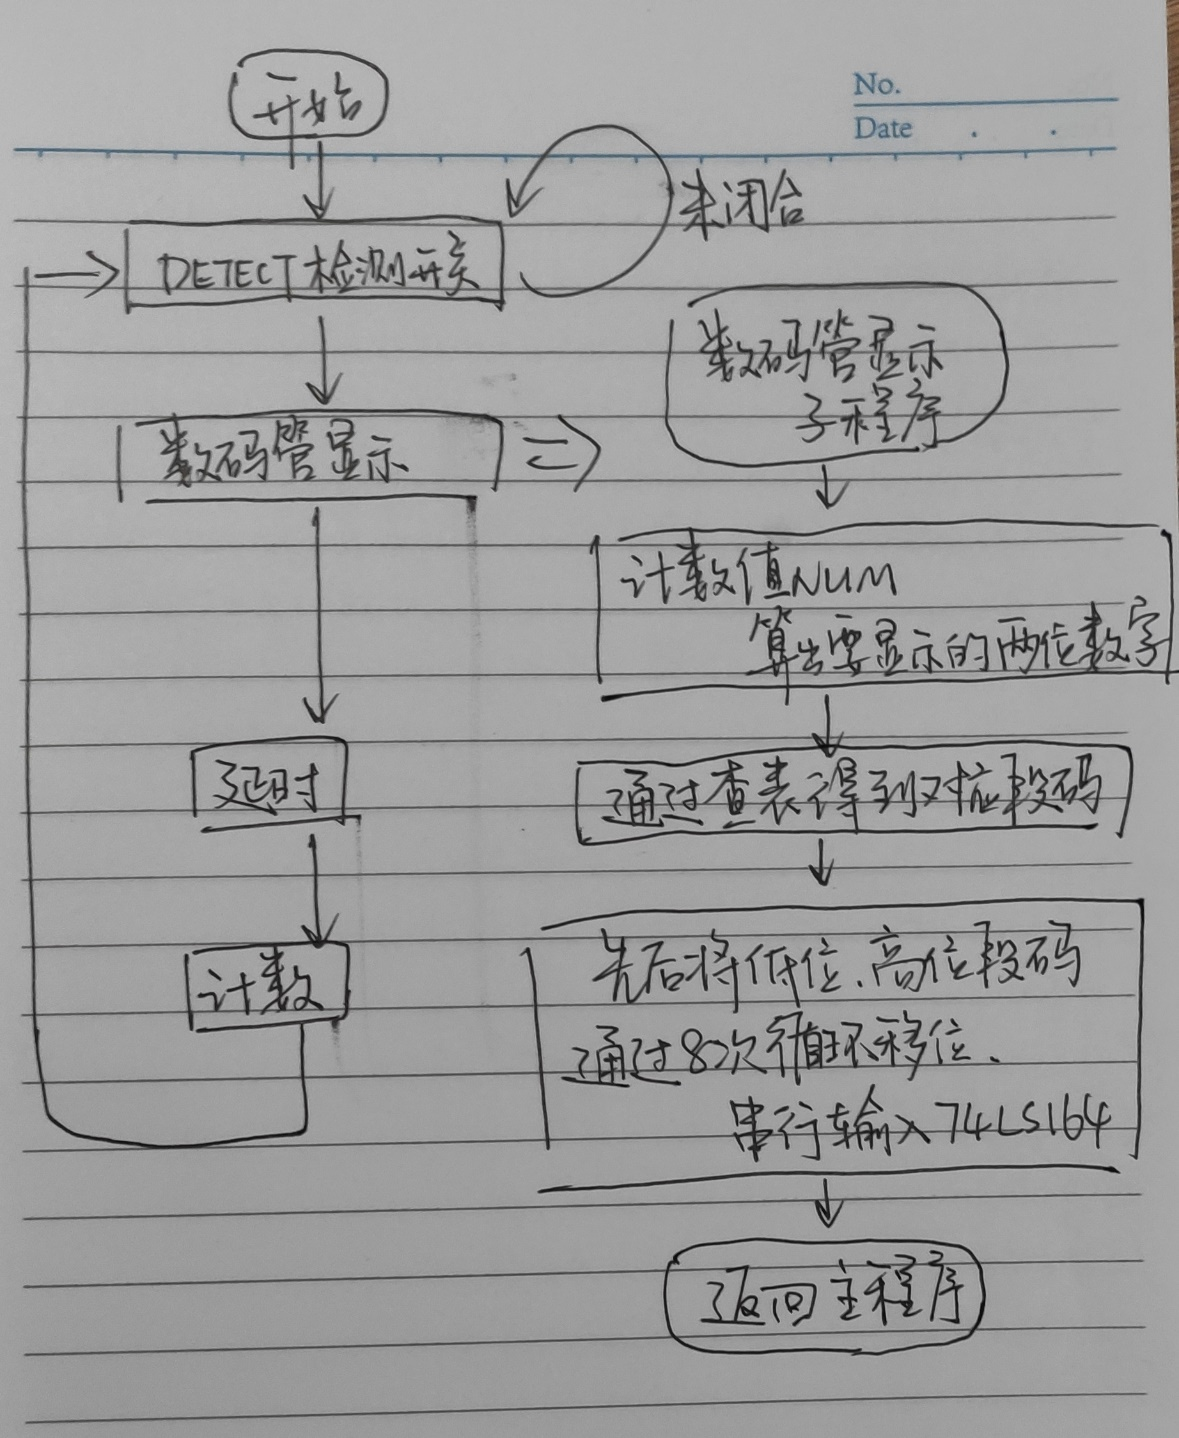 No.
Date
开始
未闭合
DETECT 检测开关
数码管显示
子程序
数码管显示
计数值NUM
算出要显示的两位数字
延时
通过查表得到对应段码
计数
先后将低位、高位段码
通过8次循环移位、
串行输入74LS164
返回主程序